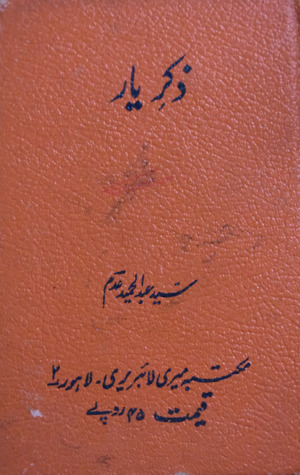 ذکرِ یار
سیّد عبدالحمید عدم
مکتبہ میری لائبریری ۔ لاہور ۲
قیمت ۴۵ روپے